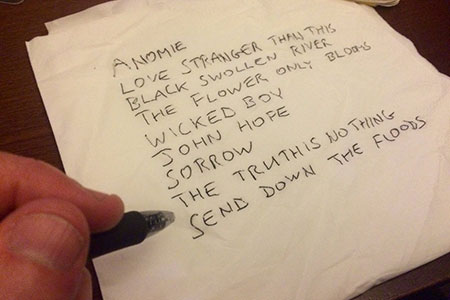 ANOMIE
LOVE STRANGER THAN THIS
BLACK SWOLLEN RIVER
THE FLOWER ONLY BLOOMS
WICKED BOY
JOHN HOPE
SORROW
THE TRUTH IS NOTHING
SEND DOWN THE FLOODS